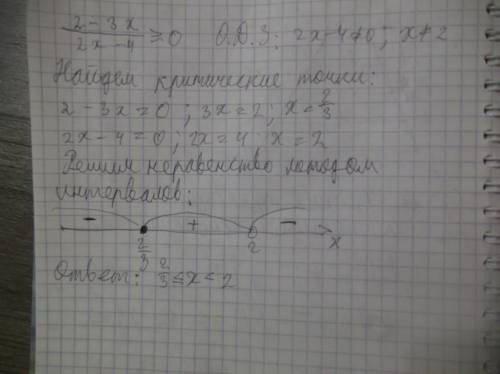 (2-3x)/(2x-4) ≥ 0   О.Д.З: 2x-4≠0; x≠2
Найдем критические точки:
2-3x=0; 3x=2; x=2/3
2x-4=0; 2x=4 x=2
Решим неравенство методом
интервалов:
- + -
2/3 2 x
Ответ: 2/3 ≤ x < 2